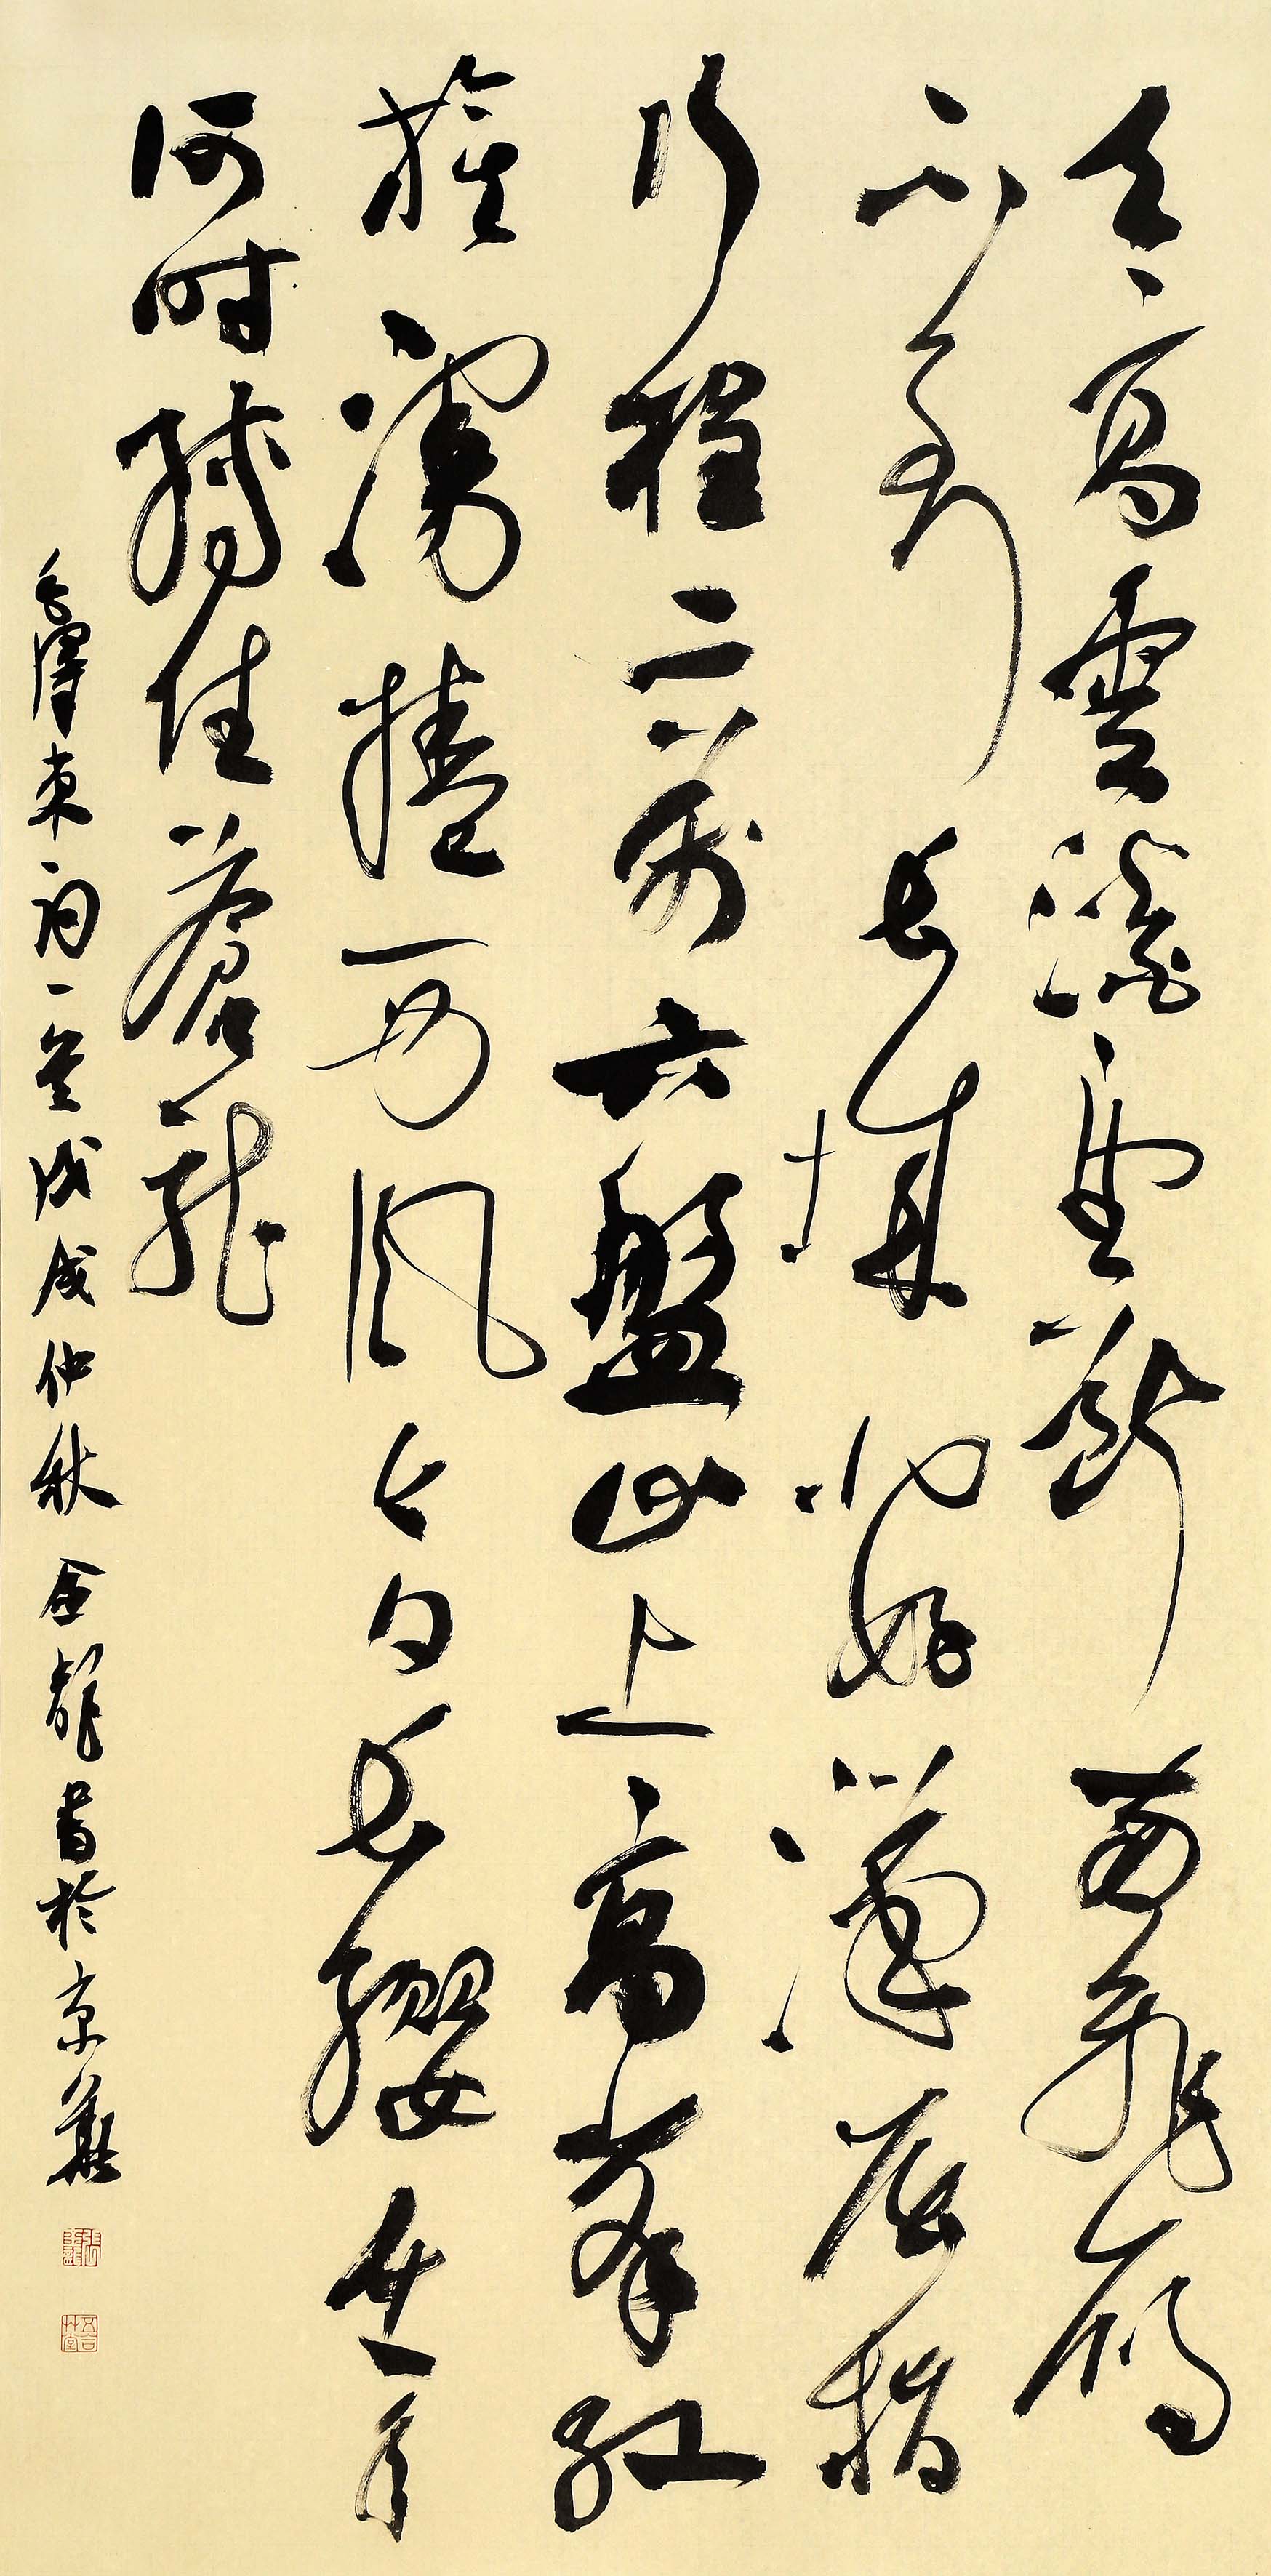 天高雲淡望斷南飛雁
不到長城非好漢屈指
行程二萬六盤山上高峰紅
旗漫捲西風今日長纓在手
何時縛住蒼龍
毛澤東詞一首戊戌仲秋金龍書於京華